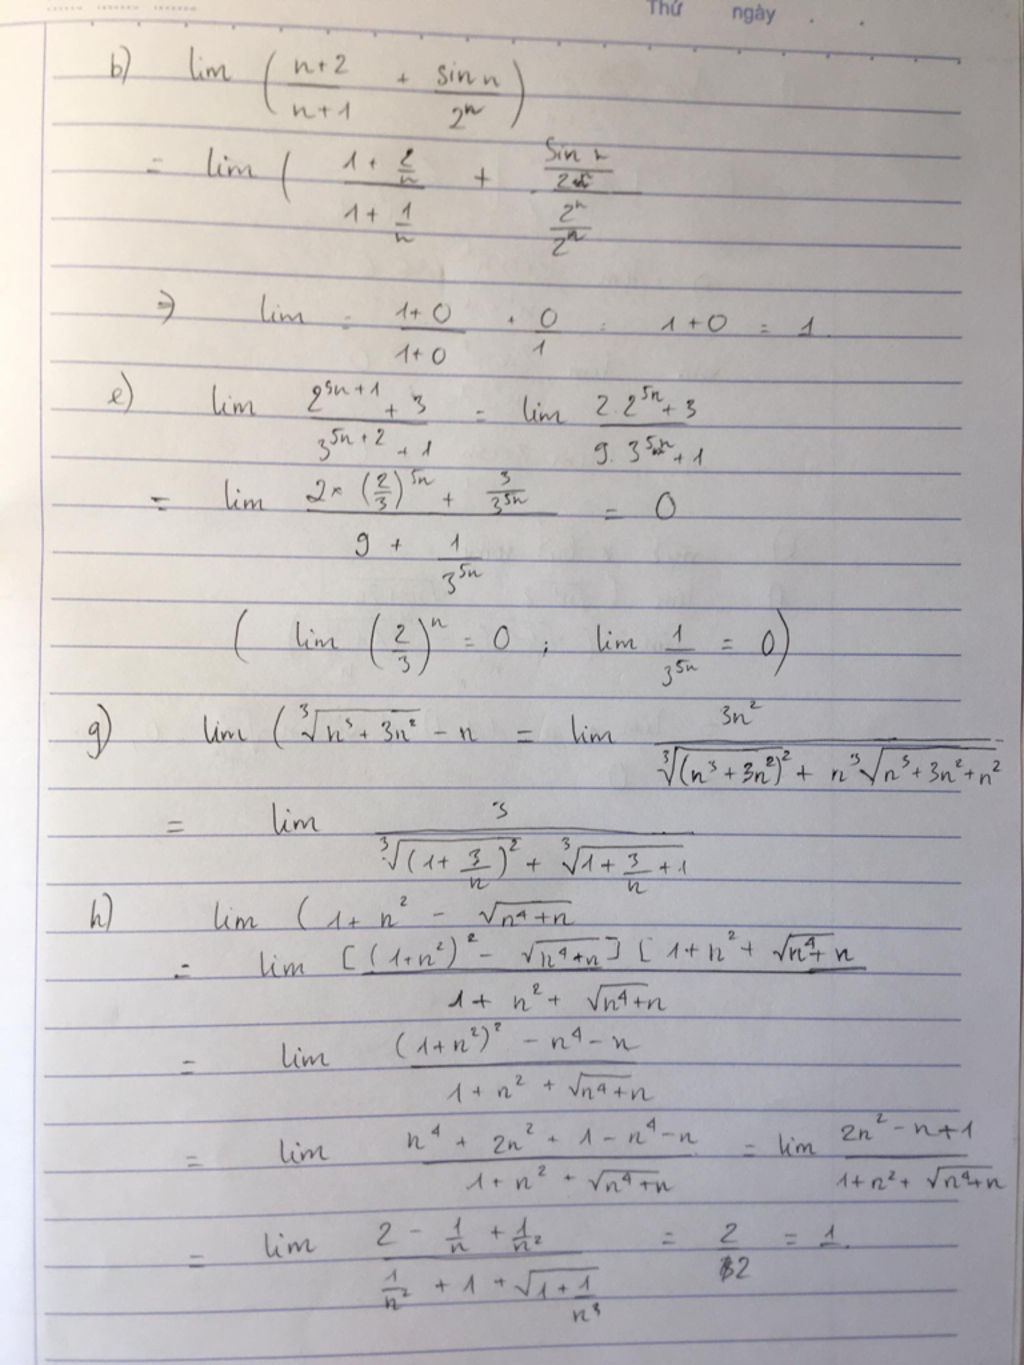 Thứ ngày . .
b) lim ( (n+2)/(n+1) + (sin n)/(2^n) )
= lim ( (1 + 2/n)/(1 + 1/n) + ((sin n)/(2^n))/((2^n)/(2^n))
⇒ lim = (1+0)/(1+0) + 0/1 = 1+0 = 1
e) lim (2^(5n+1) + 3)/(3^(5n+2) + 1) = lim (2.2^(5n) + 3)/(9.3^(5n) + 1)
= lim (2 × (2/3)^(5n) + 3/3^(5n))/(9 + 1/3^(5n)) = 0
( lim (2/3)^n = 0 ; lim 1/3^(5n) = 0 )
g) lim ( ∛(n³ + 3n²) - n = lim 3n²/(∛((n³ + 3n²)²) + n ∛(n³ + 3n² + n²))
= lim 3/(∛((1 + 3/n)²) + ∛(1 + 3/n + 1))
h) lim ( 1 + n² - √(n⁴ + n)
= lim [ (1+n²)² - √(n⁴+n) ] [ 1 + n² + √(n⁴ + n) / (1 + n² + √(n⁴+n))
= lim ((1+n²)² - n⁴ - n)/(1 + n² + √(n⁴+n))
= lim (n⁴ + 2n² + 1 - n⁴ - n)/(1 + n² + √(n⁴+n)) = lim (2n² - n + 1)/(1 + n² + √(n⁴+n))
= lim (2 - 1/n + 1/n²)/(1/n² + 1 + √(1 + 1/n³)) = 2/2 = 1.